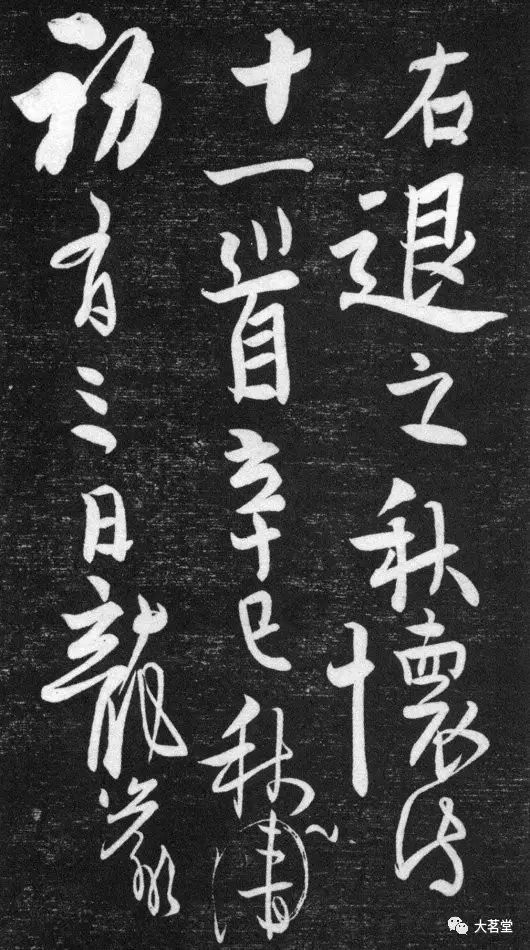 右退之秋懷詩
十一首辛巳秋
初有三日龍
大茗堂